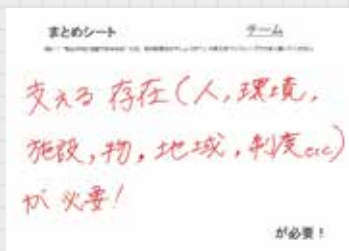 まとめシート
チーム
支える存在(人,環境,
施設,物,地域,制度etc)
が必要!
が必要！